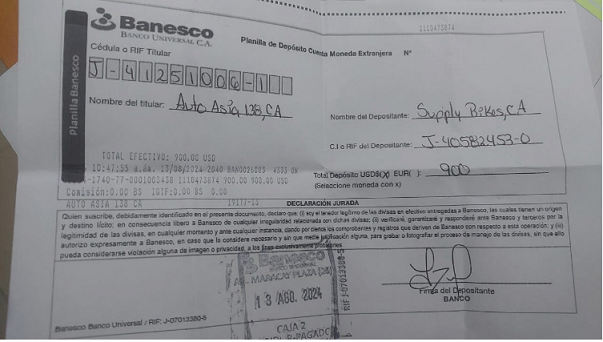 Banesco
BANCO UNIVERSAL C.A.
Planilla de Depósito Cuenta Moneda Extranjera N°
2110473874
Planilla Banesco
Cédula o RIF Titular
J-41251006-1
Nombre del titular: Auto Asia 138, CA
Nombre del Depositante: Supply Bikes, CA
C.I o RIF del Depositante: J-40582453-0
TOTAL EFECTIVO: 900,00 USD
Total Depósito USD$(X) EUR( ): 900
(Seleccione moneda con x)
10:47:55 a.m. 13/08/2024 2040
900.00 900.00 USD
Comisión:0.00 BS IGTF:0.00 BS 0.00
AUTO ASIA 138 CA
DECLARACIÓN JURADA
Quien suscribe, debidamente identificado en el presente documento, declaro que: (i) soy el tenedor legítimo de las divisas en efectivo entregadas a Banesco, las cuales tienen un origen
y destino lícito; en consecuencia libero a Banesco de cualquier irregularidad relacionada con dichas divisas; (ii) verificaré, garantizaré y responderé ante Banesco y terceros por la
legitimidad de las divisas, en cualquier momento y ante cualquier instancia, dando por ciertos los comprobantes y registros que deriven de Banesco con respecto a esta operación; y (iii)
autorizo expresamente a Banesco, en caso que lo considere necesario y sin que medie notificación alguna, para grabar o fotografiar el proceso de manejo de las divisas, sin que ello
pueda considerarse violación alguna de imagen o privacidad, a los fines exclusivamente probatorios.
Banesco
AG. MARACAY PLAZA
13 AGO. 2024
CAJA 2
RIF J-07013380-5
Firma del Depositante
BANCO
Banesco Banco Universal / RIF: J-07013380-5